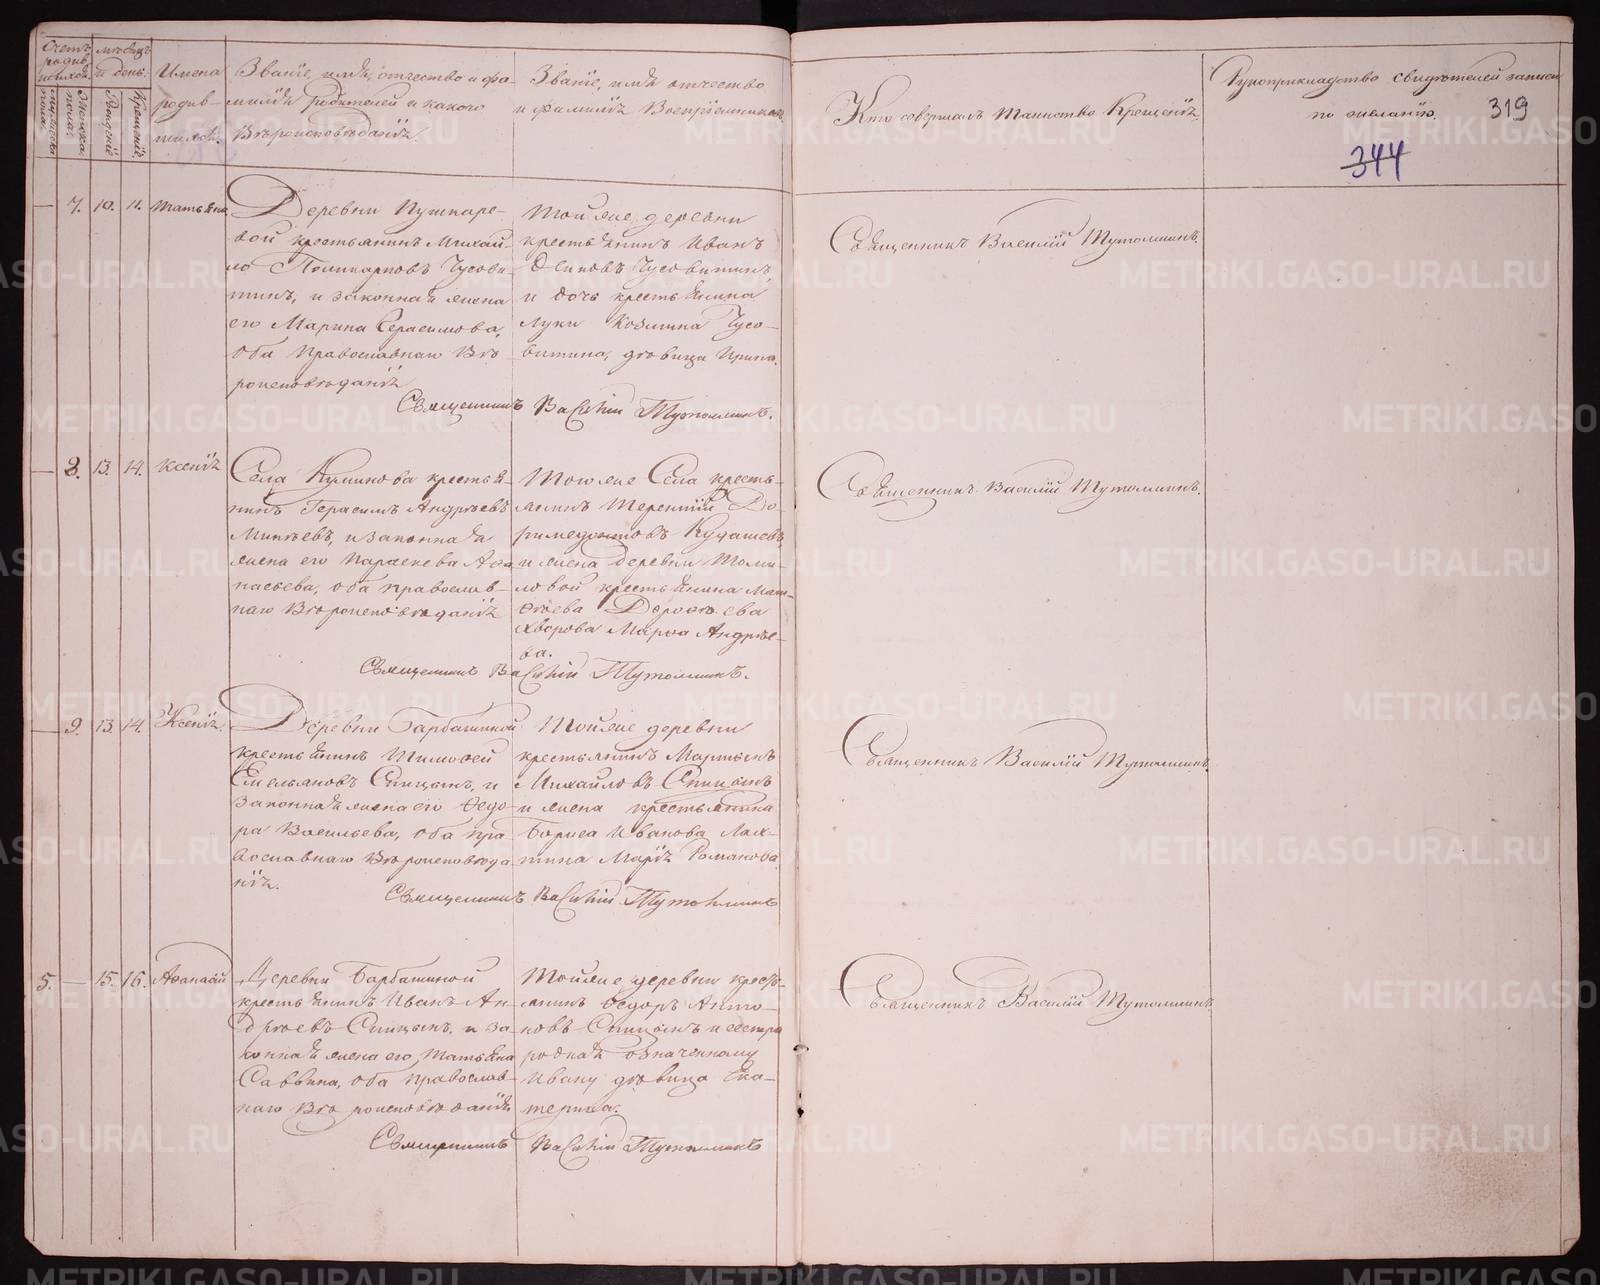 Счетъ родив. мѣсяцъ и день.
Имена родив-
Званіе, имя, отчество и фа-
милія родителей и какого
Вѣроисповѣданія.
Званіе, имя отчество
и фамилія Воспріемниковъ
Кто совершалъ таинство Крещенія.
Рукоприкладство свидѣтелей записи
по желанію.
319
344
7. 10. 11. Татьяна
Деревни Пушкаре-
вой крестьянинъ Михай-
ло Поликарповъ Чусови-
тинъ, и законная жена
его Марина Герасимова,
оба православнаго Вѣ-
роисповѣданія
Той же деревни
крестьянинъ Иванъ
Осиповъ Чусовитинъ,
и дочь крестьянина
Луки Козмина Чусо-
витина, дѣвица Ирина.
Священникъ Василій Тутолминъ.
Священникъ Василій Тутолминъ.
8. 13. 14. Ксенія
Села Куминова крестья-
нинъ Герасимъ Андреевъ
Минѣевъ, и законная
жена его Параскева Аѳа-
насьева, оба православ-
наго Вѣроисповѣданія
Того же Села кресть-
янинъ Терентій До-
римедонтовъ Кудашевъ
и жена деревни Томи-
ловой крестьянина Мат-
ѳѣева Дороѳѣева
Хворова Марѳа Андрѣе-
ва.
Священникъ Василій Тутолминъ.
Священникъ Василій Тутолминъ.
9. 13. 14. Ксенія.
Деревни Барбашиной
крестьянинъ Тимоѳей
Емельяновъ Спицынъ, и
законная жена его Ѳедо-
ра Васильева, оба пра-
вославнаго Вѣроисповѣда-
нія.
Той же деревни
крестьянинъ Мартынъ
Михайловъ Спицынъ
и жена крестьянина
Бориса Иванова Лах-
тина Марія Романова.
Священникъ Василій Тутолминъ
Священникъ Василій Тутолминъ.
5. 15. 16. Аѳанасій
Деревни Барбашиной
крестьянинъ Иванъ Ан-
дреевъ Спицынъ, и за-
конная жена его Татьяна
Саввина, оба православ-
наго Вѣроисповѣданія
Той же деревни кресть-
янинъ Ѳедоръ Анто-
новъ Спицынъ и сестра
родная означенному
Ивану дѣвица Ека-
терина.
Священникъ Василій Тутолминъ
Священникъ Василій Тутолминъ.
METRIKI.GASO-URAL.RU